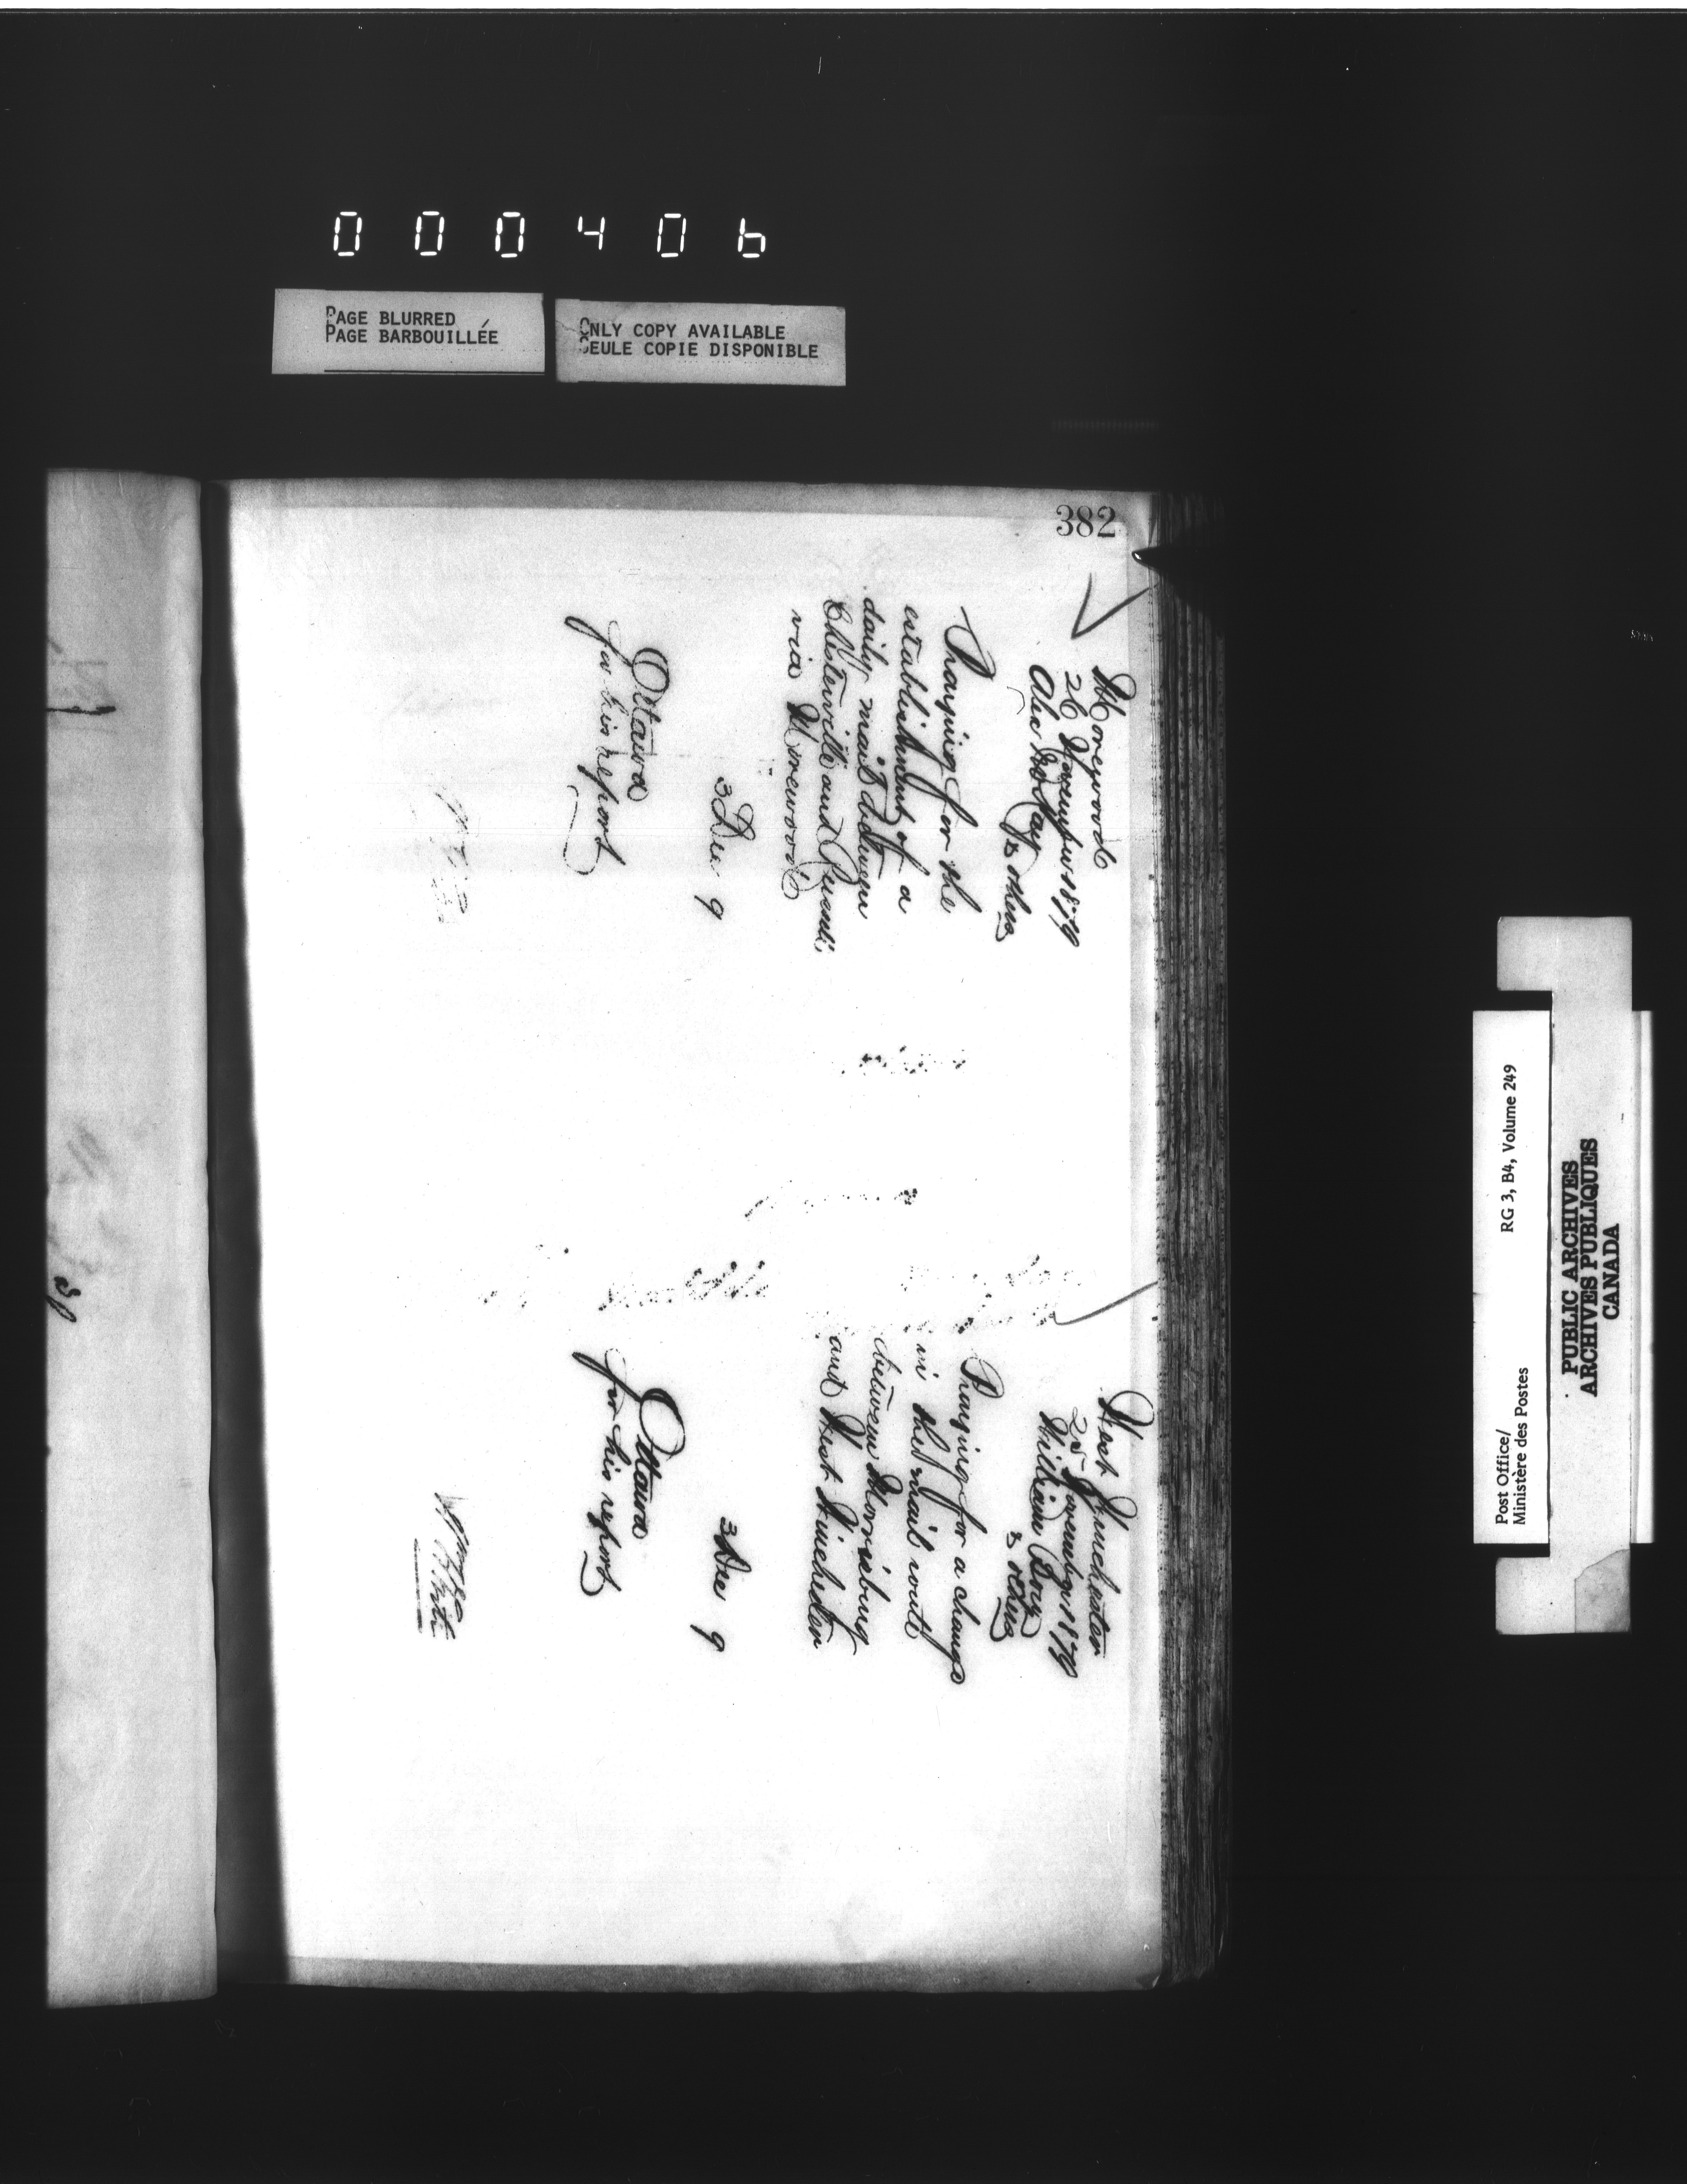 000406
PAGE BLURRED
PAGE BARBOUILLÉE
ONLY COPY AVAILABLE
SEULE COPIE DISPONIBLE
382
Morewood
26 November 1879
Alex McKay & others
Praying for the
establishment of a
daily mail between
Chesterville and
via Morewood
3 Dec 9
Ottawa
for his report
West Winchester
25 November 1879
William
& others
Praying for a change
in the mail route
between Morrisburg
and West Winchester
3 Dec 9
Ottawa
for his report
Post Office/
Ministère des Postes
RG 3, B4, Volume 249
PUBLIC ARCHIVES
ARCHIVES PUBLIQUES
CANADA